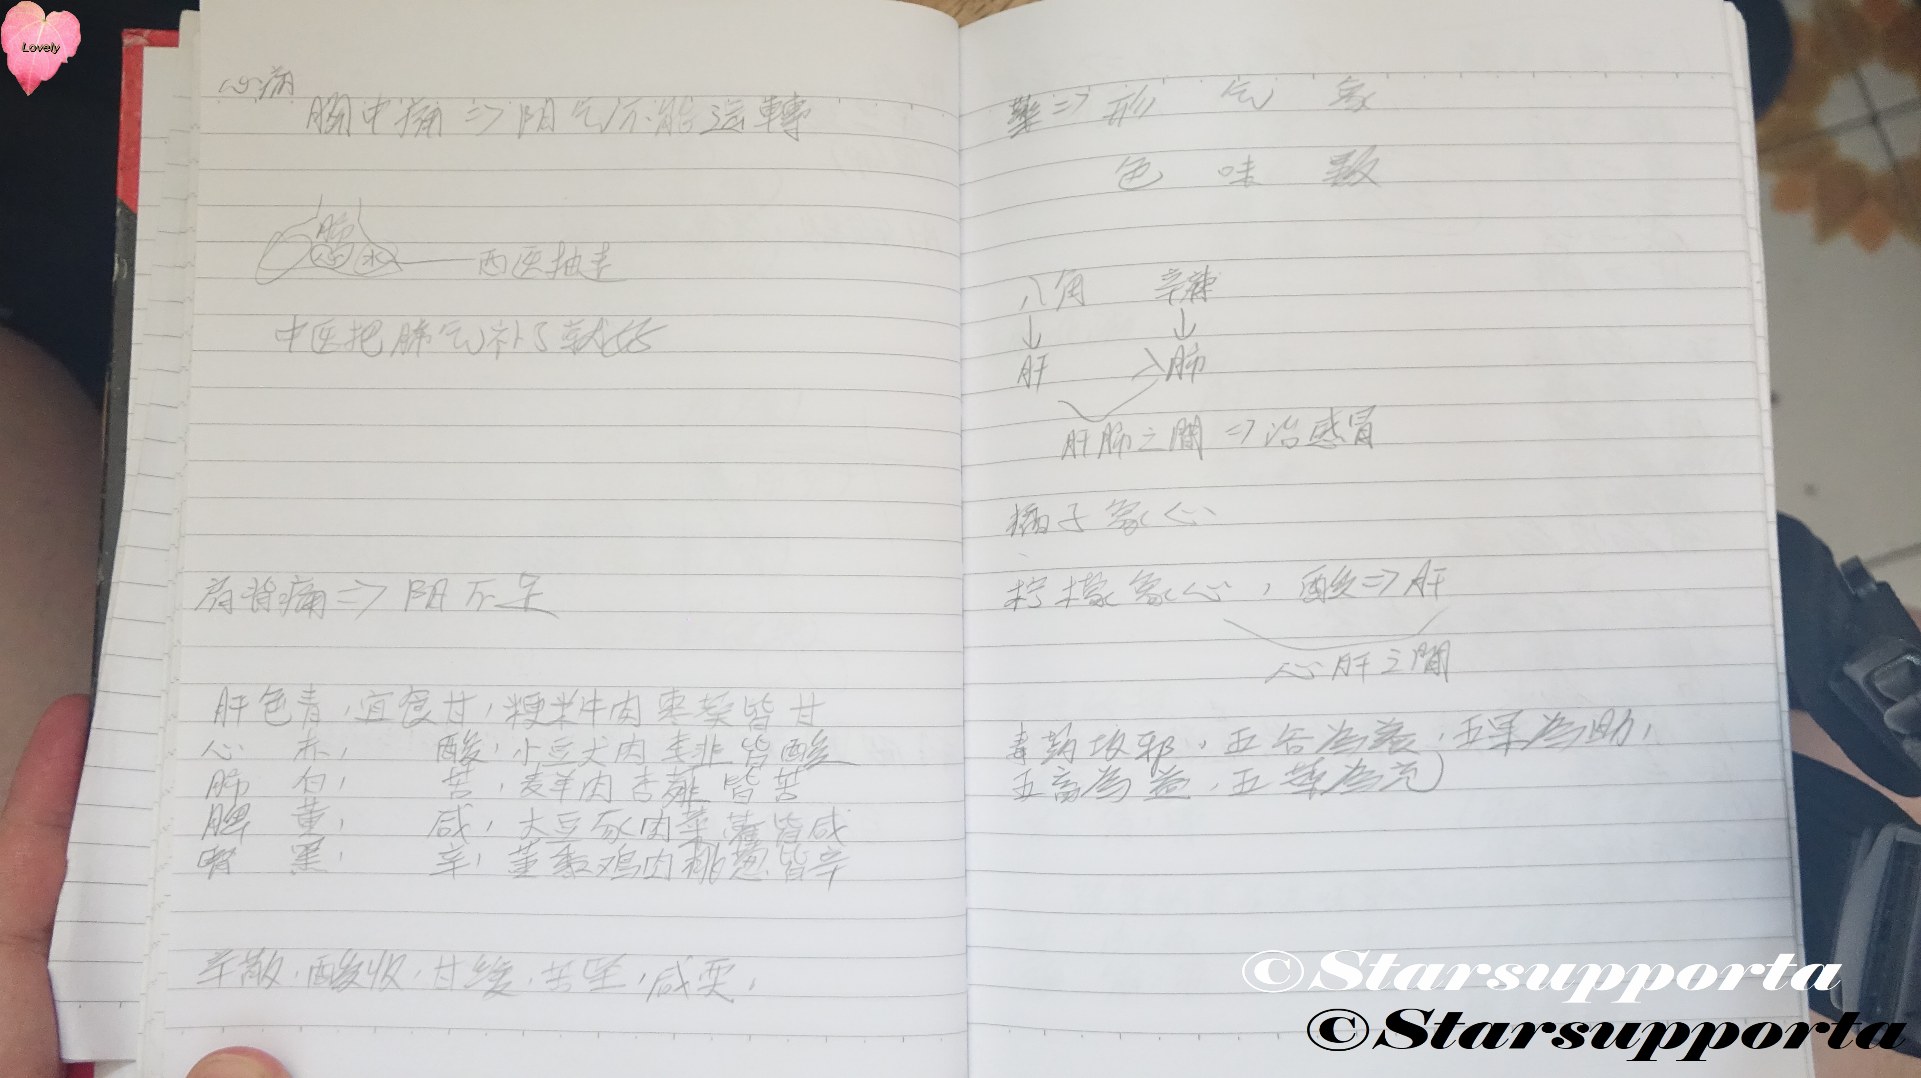 Lovely
心病
胸中痛 => 阳气不能运轉
肺
心 水 —— 西医抽走
中医把肺气补了就好
肩背痛 => 阳不足
肝色青,宜食甘,粳米牛肉枣葵皆甘
心 赤, 酸,小豆犬肉李韭皆酸
肺 白, 苦,麦羊肉杏薤皆苦
脾 黄, 咸,大豆豕肉栗藿皆咸
腎 黑, 辛,黄黍鸡肉桃葱皆辛
辛散.酸收.甘缓.苦坚,咸耎,
=> 形 气 象
色 味 数
八角 辛辣
↓ ↓
肝 入肺
肝肺之間 => 治感冒
橘子象心
柠檬象心,酸=>肝
心肝之間
毒药攻邪,五谷為養,五果為助,
五畜為益,五菜為充
©Starsupporta
©Starsupporta